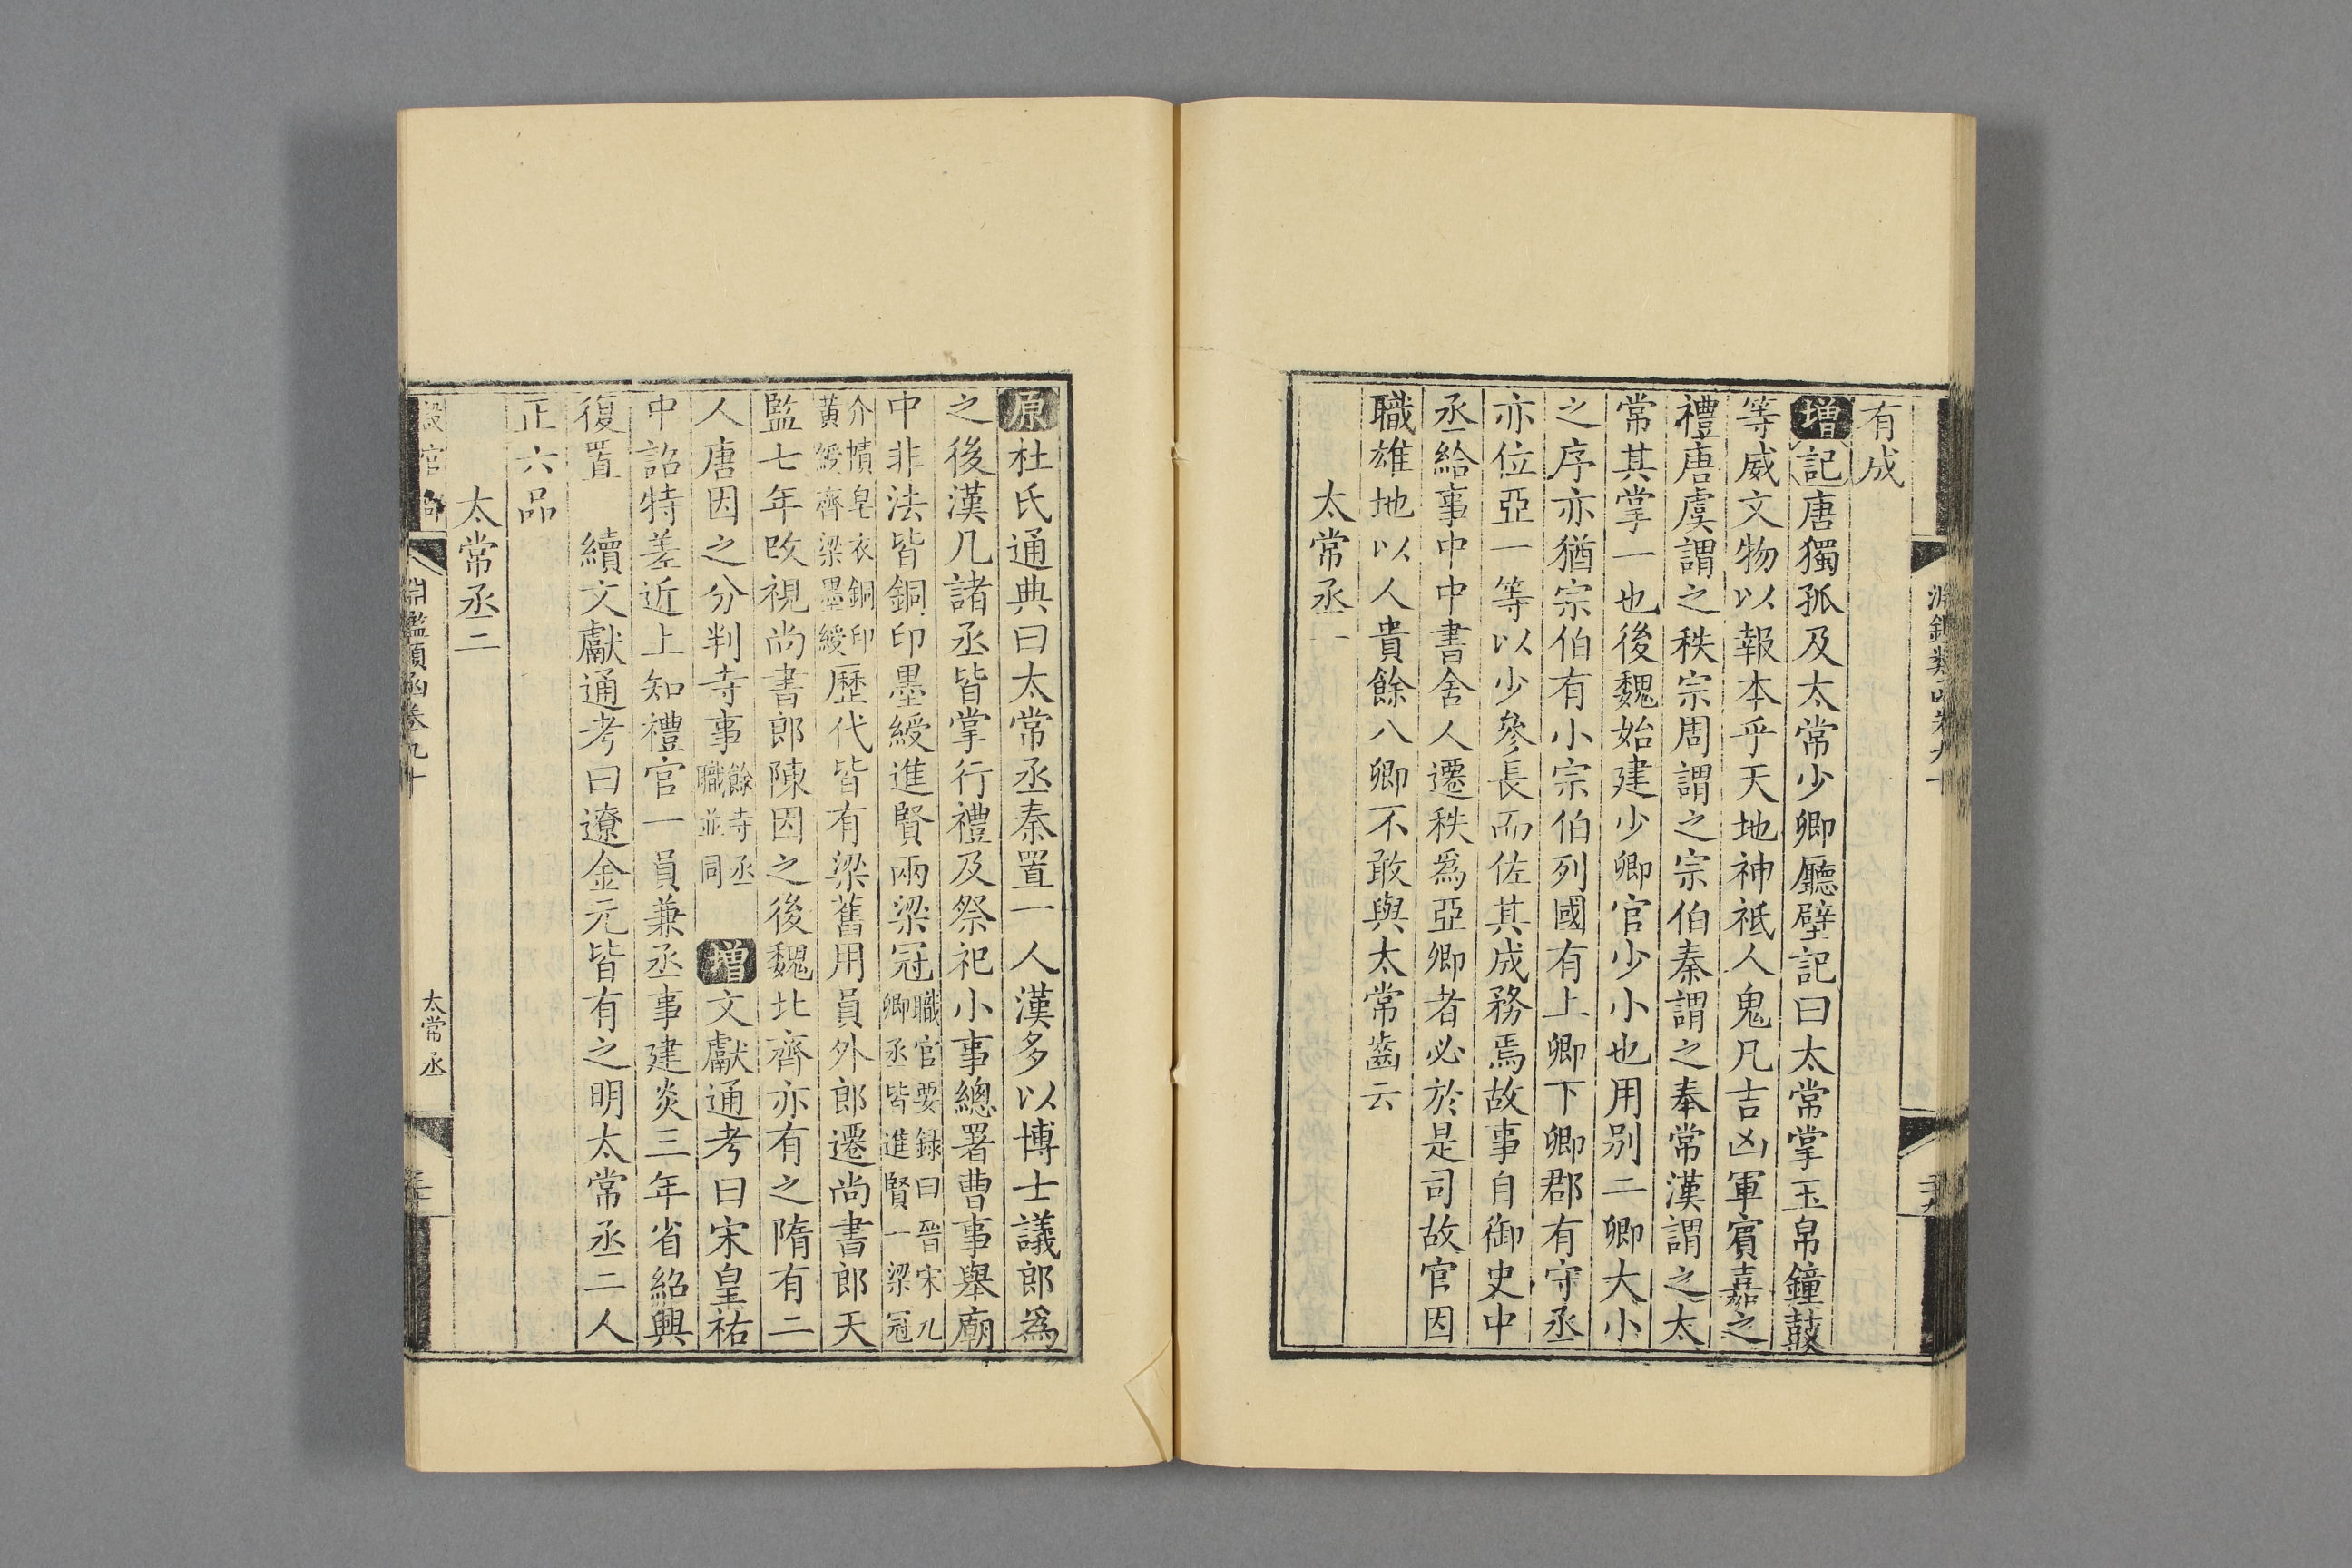 有成
增記唐獨孤及太常少卿廳壁記曰太常掌玉帛鐘鼓
等威文物以報本乎天地神祇人鬼凡吉凶軍賓嘉之
禮唐虞謂之秩宗周謂之宗伯秦謂之奉常漢謂之太
常其掌一也後魏始建少卿官少小也用别二卿大小
之序亦猶宗伯有小宗伯列國有上卿下卿郡有守丞
亦位亞一等以少參長而佐其成務焉故事自御史中
丞給事中中書舍人遷秩爲亞卿者必於是司故官因
職雄地以人貴餘八卿不敢與太常齒云
太常丞一
原杜氏通典曰太常丞秦置一人漢多以博士議郎爲
之後漢凡諸丞皆掌行禮及祭祀小事總署曹事舉廟
中非法皆銅印墨綬進賢兩梁冠職官要録曰晉宋九卿丞皆進賢一梁冠
介幘皂衣銅印黄綬齊梁墨綬歷代皆有梁舊用員外郎遷尚書郎天
監七年改視尚書郎陳因之後魏北齊亦有之隋有二
人唐因之分判寺事餘寺丞職並同 增文獻通考曰宋皇祐
中詔特差近上知禮官一員兼丞事建炎三年省紹興
復置 續文獻通考曰遼金元皆有之明太常丞二人
正六品
太常丞二
淵鑑類函卷九十
太常丞